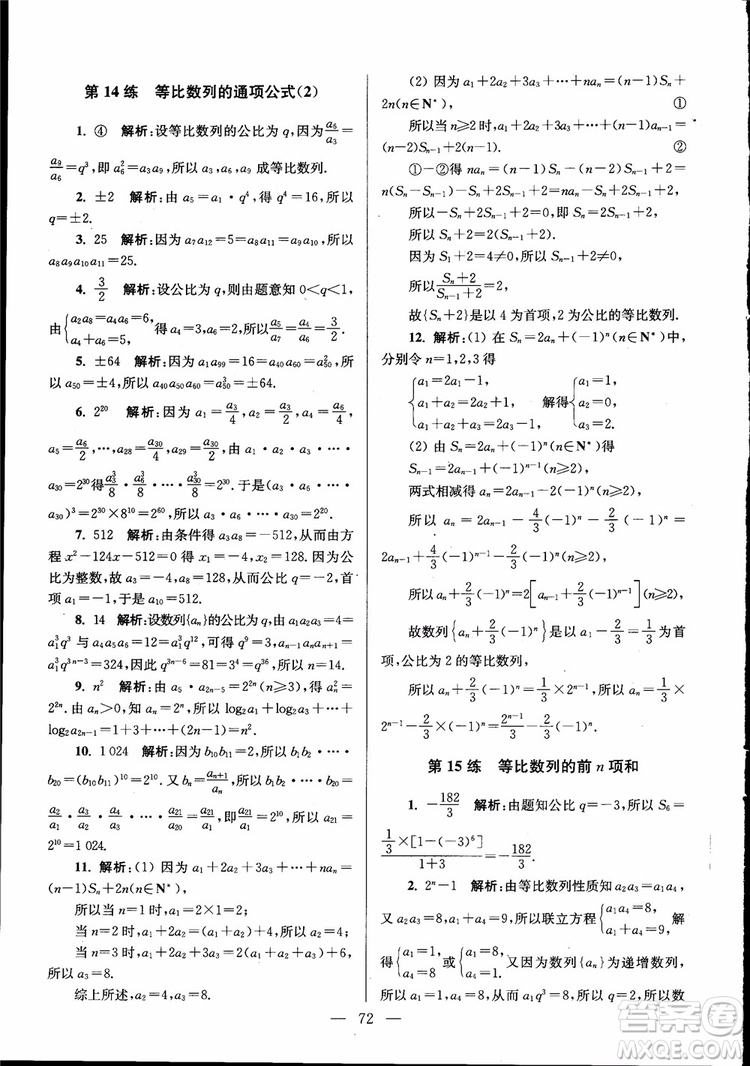 第14练 等比数列的通项公式(2)
1. ④ 解析:设等比数列的公比为 q,因为\frac{a_6}{a_3}=
\frac{a_9}{a_6}=q³,即 a_6²=a_3a_9,所以 a_3,a_6,a_9 成等比数列.
2. ±2 解析:由 a_5=a_1·q⁴,得 q⁴=16,所以
q=±2.
3. 25 解析:因为 a_7a_{12}=5=a_8a_{11}=a_9a_{10},所以
a_8a_9a_{10}a_{11}=25.
4. \frac{3}{2} 解析:设公比为 q,则由题意知 0<q<1,
由{a_2a_8=a_4a_6=6, a_4+a_6=5, 得 a_4=3,a_6=2,所以\frac{a_5}{a_7}=\frac{a_4}{a_6}=\frac{3}{2}.
5. ±64 解析:因为 a_1a_{99}=a_{40}a_{60}=a_{50}²=16,所
以 a_{50}=±4,所以 a_{40}a_{50}a_{60}=a_{50}³=±64.
6. 2²⁰ 解析:因为 a_1=\frac{a_3}{4},a_2=\frac{a_3}{2},a_4=\frac{a_6}{4},
a_5=\frac{a_6}{2},…,a_{28}=\frac{a_{30}}{4},a_{29}=\frac{a_{30}}{2},由 a_1·a_2·a_3·…·
a_{30}=2³⁰得\frac{a_3³}{8}·\frac{a_6³}{8}·…·\frac{a_{30}³}{8}=2³⁰.于是(a_3·a_6·…·
a_{30})³=2³⁰×8¹⁰=2⁶⁰,所以 a_3·a_6·…·a_{30}=2²⁰.
7. 512 解析:由条件得 a_3a_8=-512,从而由
方程 x²-124x-512=0 得 x_1=-4,x_2=128.因为公
比为整数,故 a_3=-4,a_8=128,从而公比 q=-2,所
以 a_1=-1,于是 a_{10}=512.
8. 14 解析:设数列{a_n}的公比为 q,由 a_1a_2a_3=4=
a_1³q³ 与 a_4a_5a_6=12=a_1³q¹²,可得 q⁹=3,a_{n-1}a_na_{n+1}=
a_1³q^{3n-3}=324,因此 q^{3n-6}=81=3⁴=q³⁶,所以 n=14.
9. n² 解析:由 a_5·a_{2n-5}=2^{2n}(n≥3),得 a_n²=
2^{2n}.由 a_n>0,知 a_n=2ⁿ,所以 log_2a_1+log_2a_3+…+
log_2a_{2n-1}=1+3+…+(2n-1)=n².
10. 1 024 解析:因为 b_{10}b_{11}=2,所以 b_1b_2·…·
b_{20}=(b_{10}b_{11})¹⁰=2¹⁰.又因为 b_n=\frac{a_{n+1}}{a_n},所以 b_1b_2·…·b_{20}=
\frac{a_2}{a_1}·\frac{a_3}{a_2}·\frac{a_4}{a_3}·…·\frac{a_{21}}{a_{20}}=\frac{a_{21}}{a_1},即\frac{a_{21}}{a_1}=2¹⁰,所以 a_{21}=
2¹⁰=1 024.
11. 解析:(1) 因为 a_1+2a_2+3a_3+…+na_n=
(n-1)S_n+2n(n∈N*),
所以当 n=1 时,a_1=2×1=2;
当 n=2 时,a_1+2a_2=(a_1+a_2)+4,所以 a_2=4;
当 n=3 时,a_1+2a_2+3a_3=2(a_1+a_2+a_3)+6,
所以 a_3=8.
综上所述,a_2=4,a_3=8.
(2) 因为 a_1+2a_2+3a_3+…+na_n=(n-1)S_n+
2n(n∈N*), ①
所以当 n≥2 时,a_1+2a_2+3a_3+…+(n-1)a_{n-1}=
(n-2)S_{n-1}+2(n-1). ②
①-②得 na_n=(n-1)S_n-(n-2)S_{n-1}+2=
n(S_n-S_{n-1})-S_n+2S_{n-1}+2=na_n-S_n+2S_{n-1}+2.
所以-S_n+2S_{n-1}+2=0,即 S_n=2S_{n-1}+2,
所以 S_n+2=2(S_{n-1}+2).
因为 S_1+2=4≠0,所以 S_{n-1}+2≠0,
所以\frac{S_n+2}{S_{n-1}+2}=2,
故{S_n+2}是以 4 为首项,2 为公比的等比数列.
12. 解析:(1) 在 S_n=2a_n+(-1)ⁿ(n∈N*)中,
分别令 n=1,2,3 得
{a_1=2a_1-1, a_1+a_2=2a_2+1, a_1+a_2+a_3=2a_3-1, 解得{a_1=1, a_2=0, a_3=1.
(2) 由 S_n=2a_n+(-1)ⁿ(n∈N*)得
S_{n-1}=2a_{n-1}+(-1)^{n-1}(n≥2),
两式相减得 a_n=2a_{n-1}-2(-1)ⁿ,
所以 a_n=2a_{n-1}-\frac{4}{3}(-1)ⁿ-\frac{2}{3}(-1)ⁿ=
2a_{n-1}+\frac{4}{3}(-1)^{n-1}-\frac{2}{3}(-1)ⁿ,
所以 a_n+\frac{2}{3}(-1)ⁿ=2[a_{n-1}+\frac{2}{3}(-1)^{n-1}](n≥2),
故数列{a_n+\frac{2}{3}(-1)ⁿ}是以 a_1-\frac{2}{3}=\frac{1}{3}为首
项,公比为 2 的等比数列,
所以 a_n+\frac{2}{3}(-1)ⁿ=\frac{1}{3}×2^{n-1},所以 a_n=\frac{1}{3}×
2^{n-1}-\frac{2}{3}×(-1)ⁿ=\frac{2^{n-1}}{3}-\frac{2}{3}(-1)ⁿ.
第15练 等比数列的前 n 项和
1. -\frac{182}{3} 解析:由题知公比 q=-3,所以 S_6=
\frac{\frac{1}{3}×[1-(-3)⁶]}{1+3}=-\frac{182}{3}.
2. 2ⁿ-1 解析:由等比数列性质知 a_2a_3=a_1a_4,
又 a_2a_3=8,a_1+a_4=9,所以联立方程{a_1a_4=8, a_1+a_4=9, 解
得{a_1=1, a_4=8 或{a_1=8, a_4=1, 又因为数列{a_n}为递增数列,
所以 a_1=1,a_4=8,从而 a_1q³=8,所以 q=2,所以数
— 72 —
答案圈
MXQE.COM